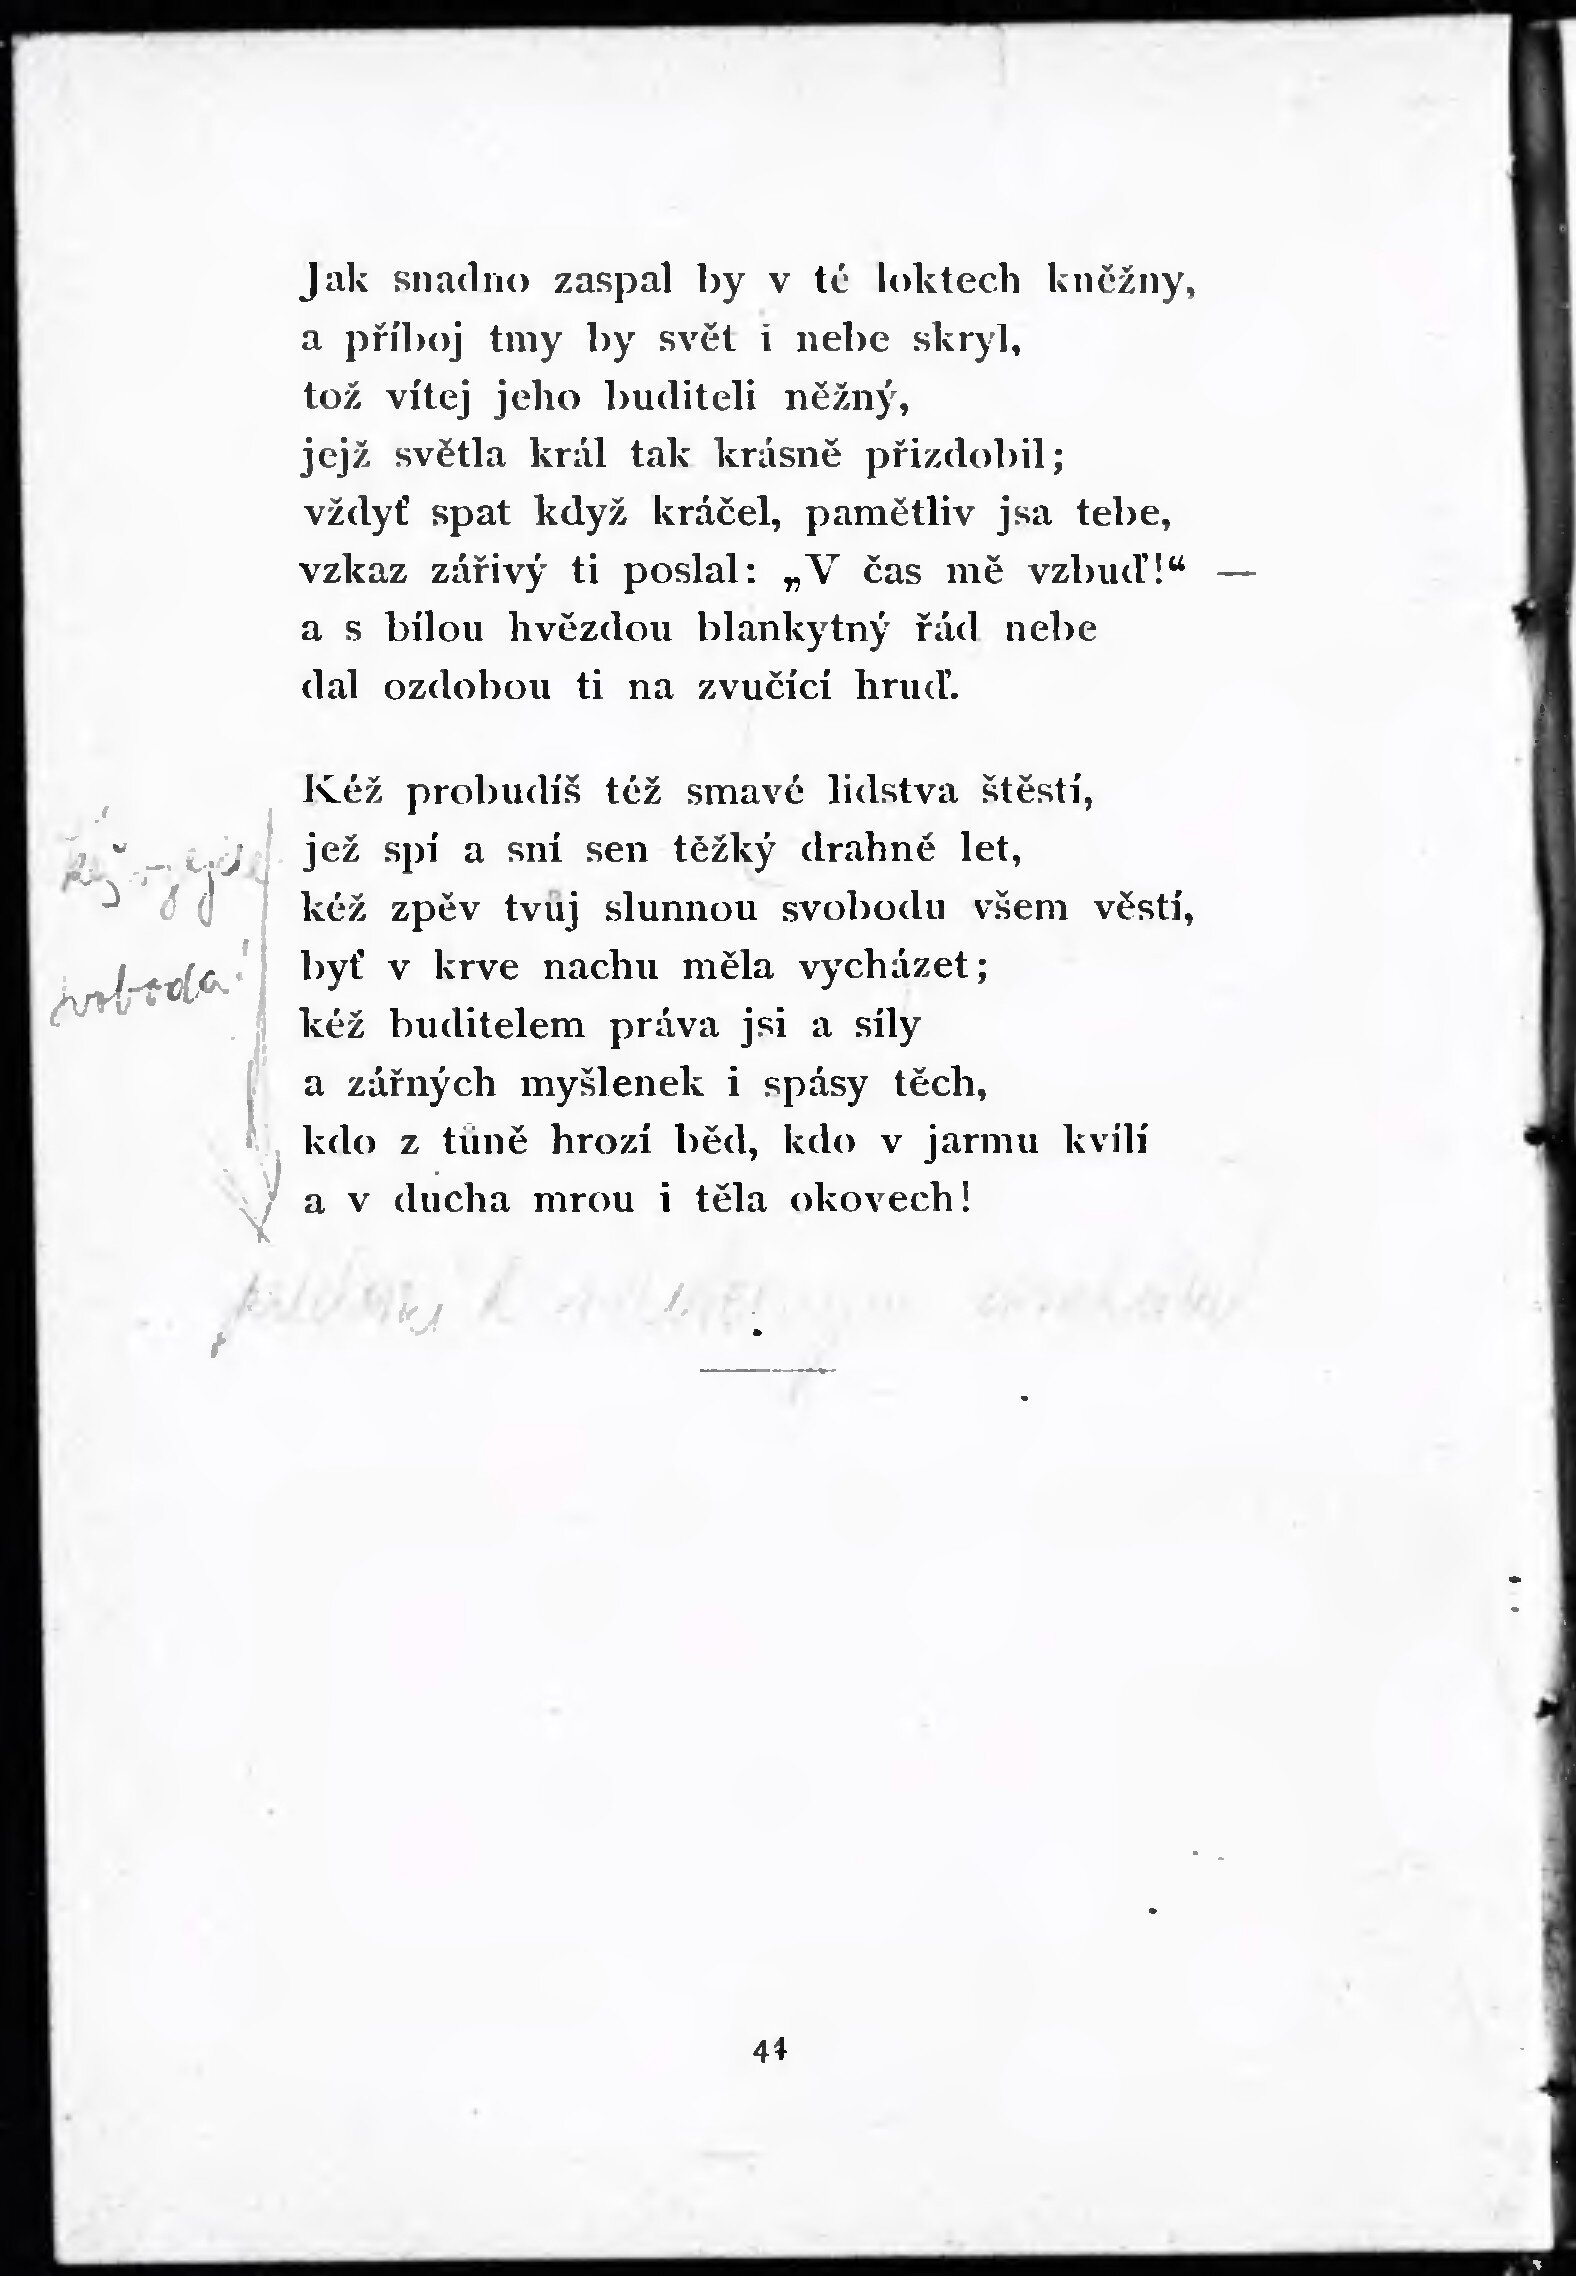 Jak snadno zaspal by v té loktech kněžny,
a příboj tmy by svět i nebe skryl,
tož vítej jeho buditeli něžný,
jejž světla král tak krásně přizdobil;
vždyť spat když kráčel, pamětliv jsa tebe,
vzkaz zářivý ti poslal: „V čas mě vzbuď!“ —
a s bílou hvězdou blankytný řád nebe
dal ozdobou ti na zvučící hruď.
Kéž probudíš též smavé lidstva štěstí,
jež spí a sní sen těžký drahně let,
kéž zpěv tvůj slunnou svobodu všem věstí,
byť v krve nachu měla vycházet;
kéž buditelem práva jsi a síly
a zářných myšlenek i spásy těch,
kdo z tůně hrozí běd, kdo v jarmu kvílí
a v ducha mrou i těla okovech!
svoboda
44